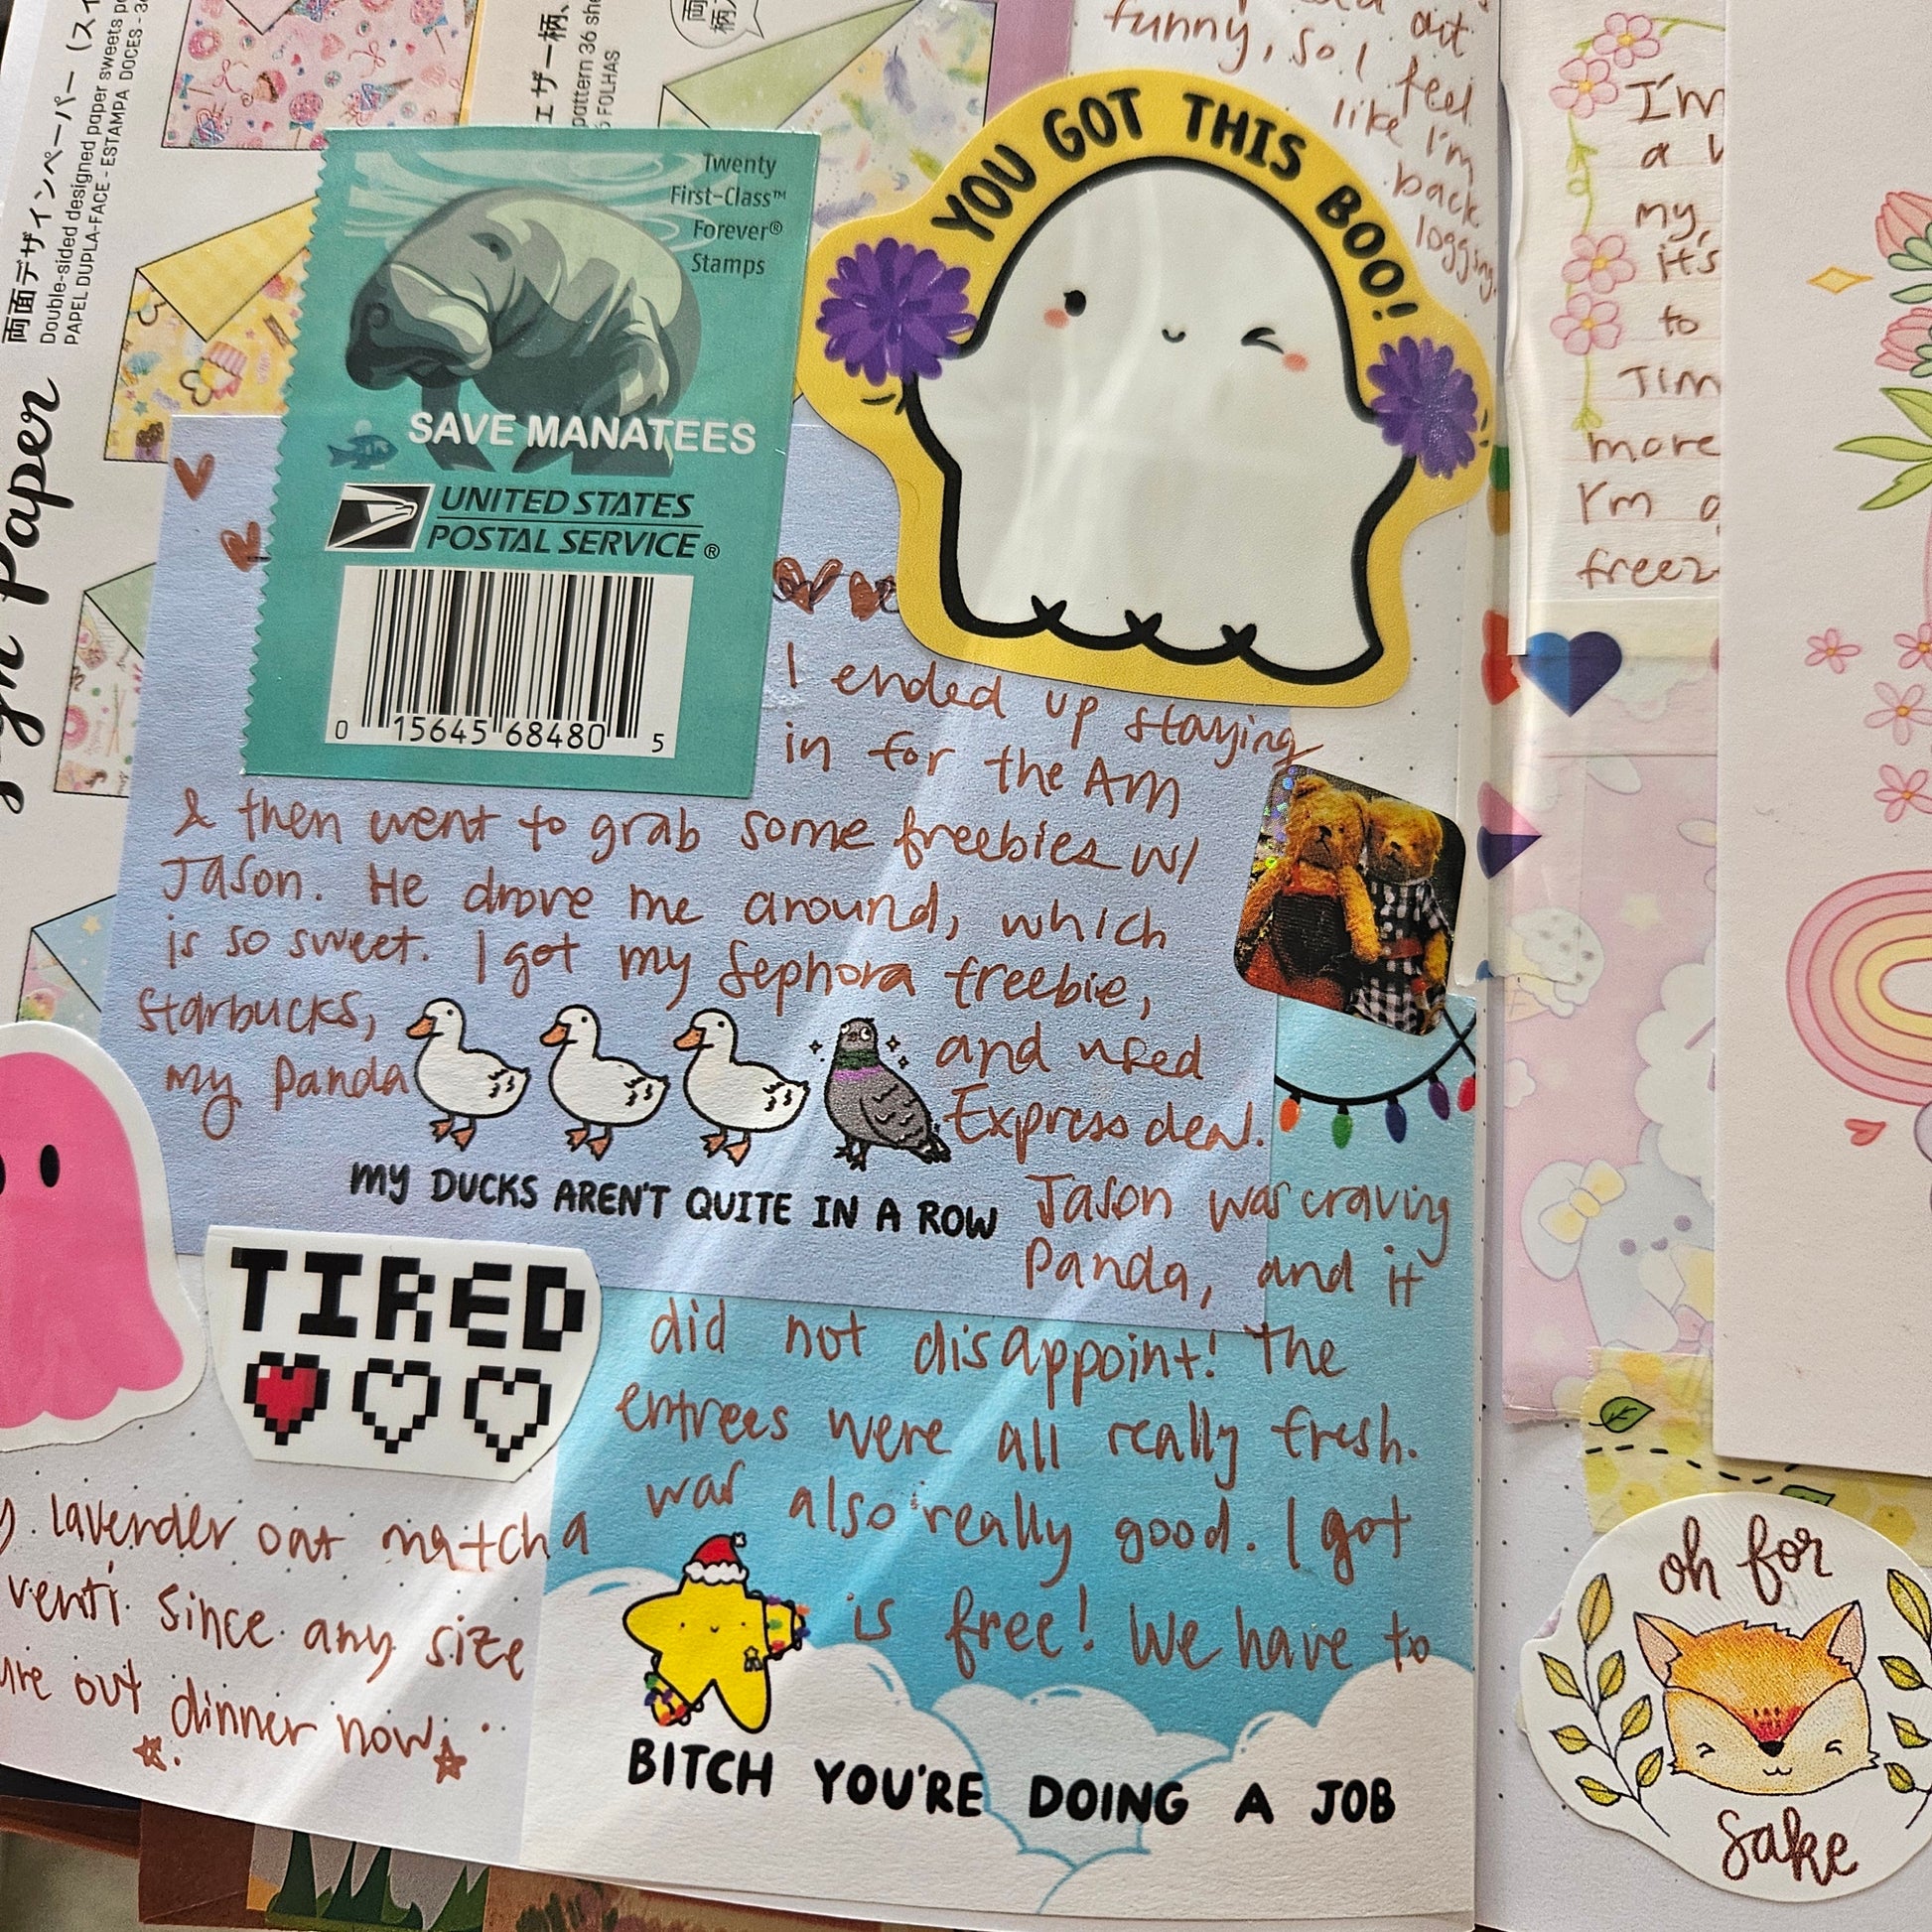 両面デザインペーパー
Double-sided designed paper sweets
PAPEL DUPLA-FACE - ESTAMPA DOCES
Paper
pattern 36
FOLHAS
out
funny, so I feel
like I'm
back
logging.
Twenty
First-Class™
Forever®
Stamps
SAVE MANATEES
UNITED STATES
POSTAL SERVICE®
0 15645 68480 5
YOU GOT THIS BOO!
I ended up staying
in for the AM
& then went to grab some freebies w/
Jason. He drove me around, which
is so sweet. I got my Sephora freebie,
Starbucks, and used
my Panda Express deal.
MY DUCKS AREN'T QUITE IN A ROW
Jason was craving
Panda, and it
did not disappoint! The
entrees were all really fresh.
TIRED
lavender oat matcha was also really good. I got
venti since any size is free! We have to
out dinner now
BITCH YOU'RE DOING A JOB
I'm
a
my,
it's
to
more
I'm
oh for
sake